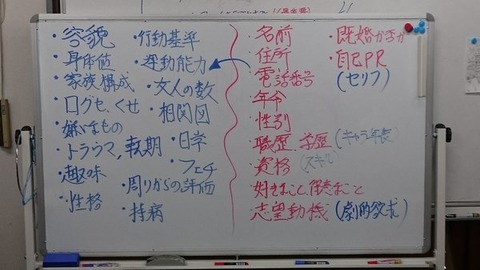 ・容貌
・身体値
・家族構成
・口グセ、くせ
・嫌いなもの
・トラウマ、転期
・趣味
・性格
・行動基準
・運動能力
・友人の数
・相関図
・日常
・フェチ
・周りからの評価
・持病
・名前
・住所
・電話番号
・年令
・性別
・職歴 学歴(キャラ年表)
・資格(スキル)
・好きなこと、得意なこと
・志望動機(劇的欲求)
・既婚か否か
・自己PR
(セリフ)